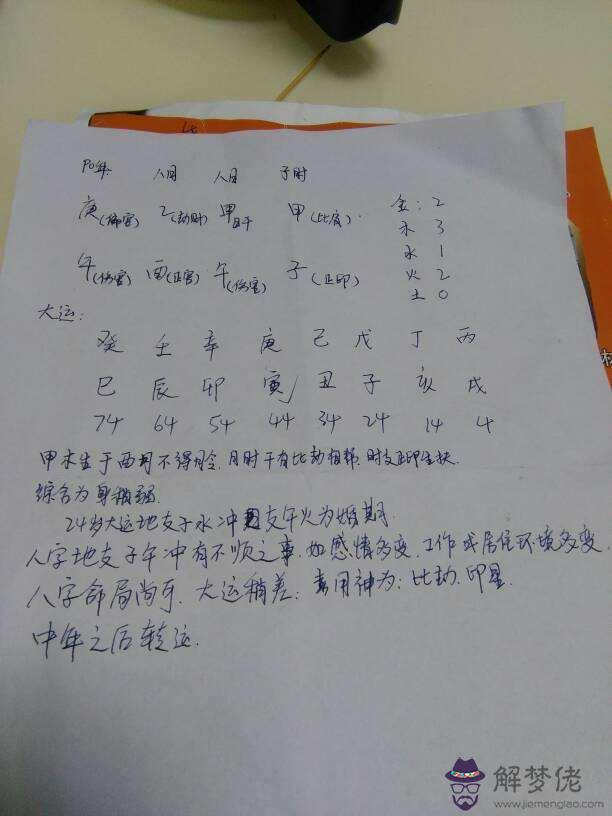 90年 八月 八日 子时
庚(偏官) 乙(劫财) 甲日干 甲(比肩)
午(伤官) 酉(正官) 午(伤官) 子(正印)
金:2
木 3
水 1
火 2
土 0
大运:
癸 壬 辛 庚 己 戊 丁 丙
巳 辰 卯 寅 丑 子 亥 戌
74 64 54 44 34 24 14 4
甲木生于酉月不得月令,月时干有比劫相帮,时支正印生扶.
综合为身稍弱.
24岁大运地支子水冲日支午火为婚期.
八字地支子午冲有不顺之事,如感情多变,工作或居住环境多变,
八字命局尚可,大运稍差,喜用神为:比劫,印星.
中年之后转运.
解梦佬
www.jiemenglao.com